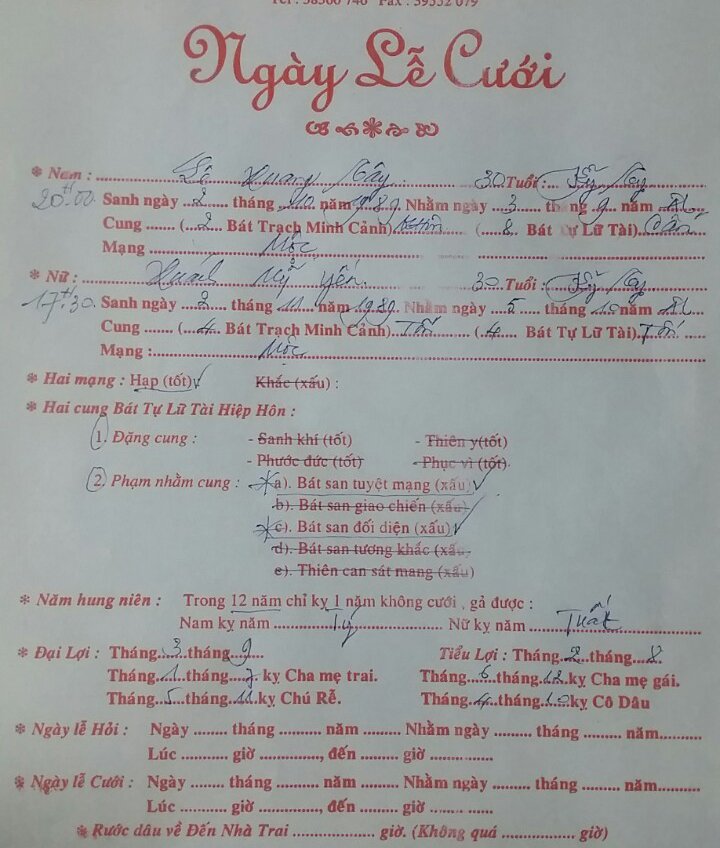 Tel : 38300 740 Fax : 39552 079
Ngày Lễ Cưới
* Nam : Lê Quang 30 Tuổi : Kỷ Tỵ
20H:00 Sanh ngày ..2.. tháng ..10.. năm 1989. Nhằm ngày ..3.. tháng ..9.. năm
Cung ...... (..2.. Bát Trạch Minh Cảnh) (..8.. Bát Tự Lữ Tài)
Mạng : Mộc
* Nữ : Huỳnh Mỹ Yến. 30 Tuổi : Kỷ Tỵ
17H:30 Sanh ngày ..2.. tháng ..11.. năm 1989. Nhằm ngày ..5.. tháng 10 năm
Cung ...... (..4.. Bát Trạch Minh Cảnh) Tốn (..4.. Bát Tự Lữ Tài) Tốn
Mạng : Mộc
* Hai mạng : Hạp (tốt) Khắc (xấu) :
* Hai cung Bát Tự Lữ Tài Hiệp Hôn :
1. Đặng cung : - Sanh khí (tốt) - Thiên y(tốt)
- Phước đức (tốt) - Phục vì (tốt)
2. Phạm nhằm cung : a). Bát san tuyệt mạng (xấu)
b). Bát san giao chiến (xấu)
c). Bát san đối diện (xấu)
d). Bát san tương khắc (xấu)
e). Thiên can sát mang (xấu)
* Năm hung niên : Trong 12 năm chỉ kỵ 1 năm không cưới , gả được :
Nam kỵ năm Tý Nữ kỵ năm Tuất
* Đại Lợi : Tháng..3..tháng..9.. Tiểu Lợi : Tháng..2..tháng..8.
Tháng..1..tháng..7.. kỵ Cha mẹ trai. Tháng..6..tháng..12..kỵ Cha mẹ gái.
Tháng..5..tháng..11..kỵ Chú Rể. Tháng..4..tháng..10..kỵ Cô Dâu
* Ngày lễ Hỏi : Ngày ........ tháng ......... năm ......... Nhằm ngày ......... tháng ......... năm..........
Lúc ......... giờ ..............., đến ....... giờ ......................
* Ngày lễ Cưới : Ngày ........ tháng ......... năm ......... Nhằm ngày ......... tháng ......... năm..........
Lúc ......... giờ ..............., đến ....... giờ ......................
* Rước dâu về Đến Nhà Trai .................... giờ. (Không quá .................. giờ)